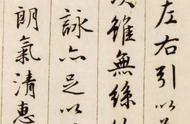 左右引以
次雖無絲竹
詠亦足以
朗氣清惠